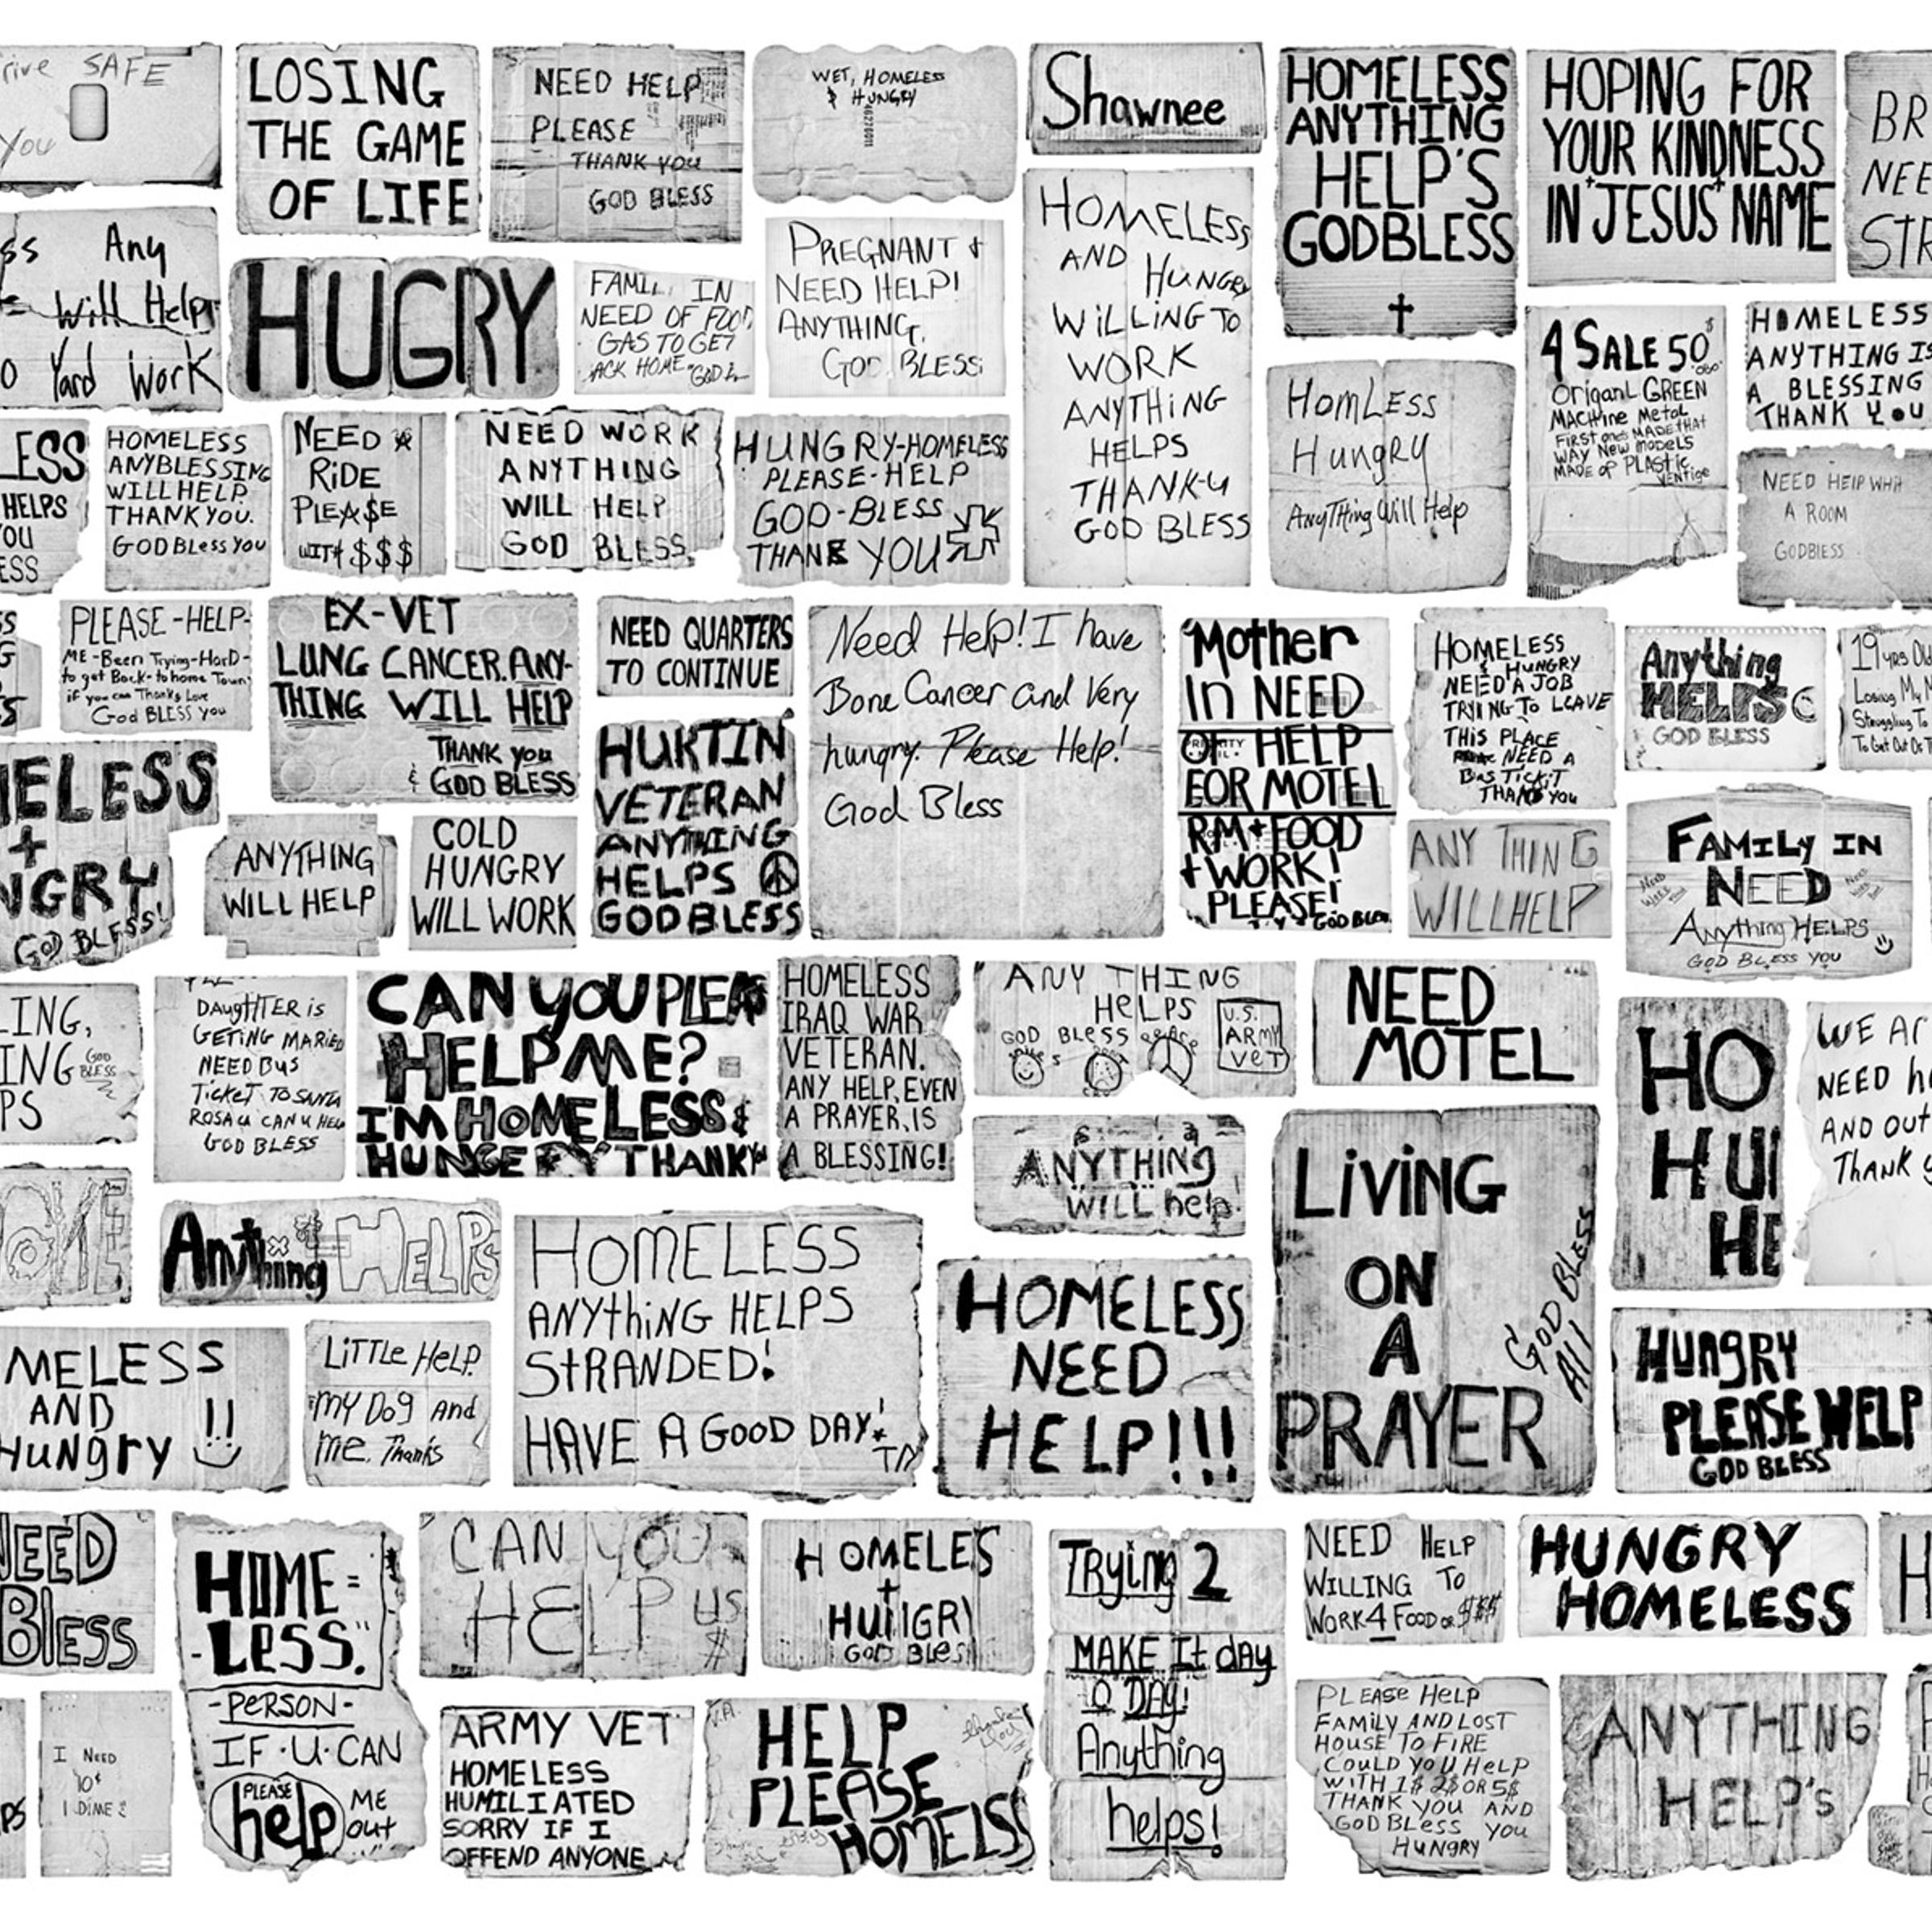 rive SAFE
You
LOSING
THE GAME
OF LIFE
NEED HELP
PLEASE
THANK YOU
GOD BLESS
WET, HOMELESS
& HUNGRY
Shawnee
HOMELESS
ANYTHING
HELP'S
GODBLESS
HOPING FOR
YOUR KINDNESS
IN JESUS NAME
BR
NEE
STR
ss Any
Will Help
o Yard Work
HUGRY
FAMIL IN
NEED OF FOOD
GAS TO GET
ACK HOME "GOD
PREGNANT &
NEED HELP!
ANYTHING.
GOD BLESS
HOMELESS
AND HUNGRY
WiLLiNG TO
WORK
ANYTHING
HELPS
THANK-U
GOD BLESS
HomLess
Hungry
AnyTHing Will Help
4 SALE 50$
OriganL GREEN
MACHine Metal
FIRST ones MADE THAT
WAY New MODELS
MADE OF PLASTIC
VENTige
HOMELESS
ANYTHING IS
A BLESSING
THANK YOU
LESS
HELPS
OU
ESS
HOMELESS
ANYBLESSING
WILL HELP.
THANK YOU.
GOD BLess YOU
NEED A
RiDE
PLEA$E
WITH $$$
NEED WORK
ANYTHING
WILL HELP
GOD BLESS
HUNGRY-HOMELESS
PLEASE-HELP
GOD-BLESS
THANK YOU
NEED HElP WHit
A ROOM
GODBlESS
SS
G
S
PLEASE-HELP-
ME-Been Trying-HarD-
to get Back-to home Town
if you can Thanks Love
God BLESS you
EX-VET
LUNG CANCER. ANY-
THING WILL HELP
THANK you
& GOD BLESS
NEED QUARTERS
TO CONTINUE
Need Help! I have
Bone Cancer and Very
hungry. Please Help!
God Bless
Mother
In NEED
OF HELP
FOR MOTEL
RM+FOOD
+WORK!
PLEASE!
GOD BLESS
HOMELESS
& HUNGRY
NEED A JOB
TRYING TO LEAVE
THiS PLACE
NEED A
BUS TiCKiT
THANK YOU
Anything
HELPS
GOD BLESS
19 YRS Old
Losing My M
Struggling To
To Get Out Of T
MELESS
+
NGRY
GOD BLESS!
ANYTHING
WILL HELP
COLD
HUNGRY
WILL WORK
HURTIN
VETERAN
ANYTHING
HELPS
GOD BLESS
ANY THING
WILLHELP
FAMILY IN
NEED
Anything HELPS
GOD BLESS YOU
LING,
ING GOD BLESS
PS
DAughTTER is
GETING MARiED
NEED Bus
TickeT TO SANTA
ROSA U CAN U HELP
GOD BLESS
CAN YOU PLEAS
HELP ME?
I'M HOMELESS &
HUNGERY THANKYou
HOMELESS
IRAQ WAR
VETERAN.
ANY HELP, EVEN
A PRAYER, IS
A BLESSING!
ANY THING
HELPS
GOD BLESS PEACE
U.S.
ARMY
VET
NEED
MOTEL
HO
HU
HE
WE Ar
NEED he
AND out
THank y
OVE
Anything HELPS
ANYTHING
WILL help!
LiViNG
ON
A
PRAYER
GOD BLESS
All
HOMELESS
ANYthiNG HELPS
STRANDED!
HAVE A GOOD DAY!
HOMELESS
NEED
HELP!!!
HUNgRY
PLEASE HELP
GOD BLESS
MELESS
AND
HUNgry !!
LiTTLe HeLP.
MY Dog And
Me. Thanks
NEED
BlESS
HOME=
-Less."
-PeRSON-
IF·U·CAN
PLEASE
help ME
out
CAN YOU
HELP US
$
HOMELES
+
HUNGRY
GOD BLess
TRying 2
MAKE It day
a DAY!
Anything
helps!
NEED HELP
WILLING TO
WORK 4 FOOD OR $$$
HUNGRY
HOMELESS
H
PS
I NEED
10¢
1 DIME
ARMY VET
HOMELESS
HUMILIATED
SORRY IF I
OFFEND ANYONE
HELP
PLEASE
HOMELSS
PLEASe HeLP
FAMILY AND LOST
HOUSE TO FIRE
COULD YOU HELP
WITH 1$ 2$ OR 5$
THANK YOU AND
GOD BLess YOU
HUNGRY
ANYTHING
HELP's